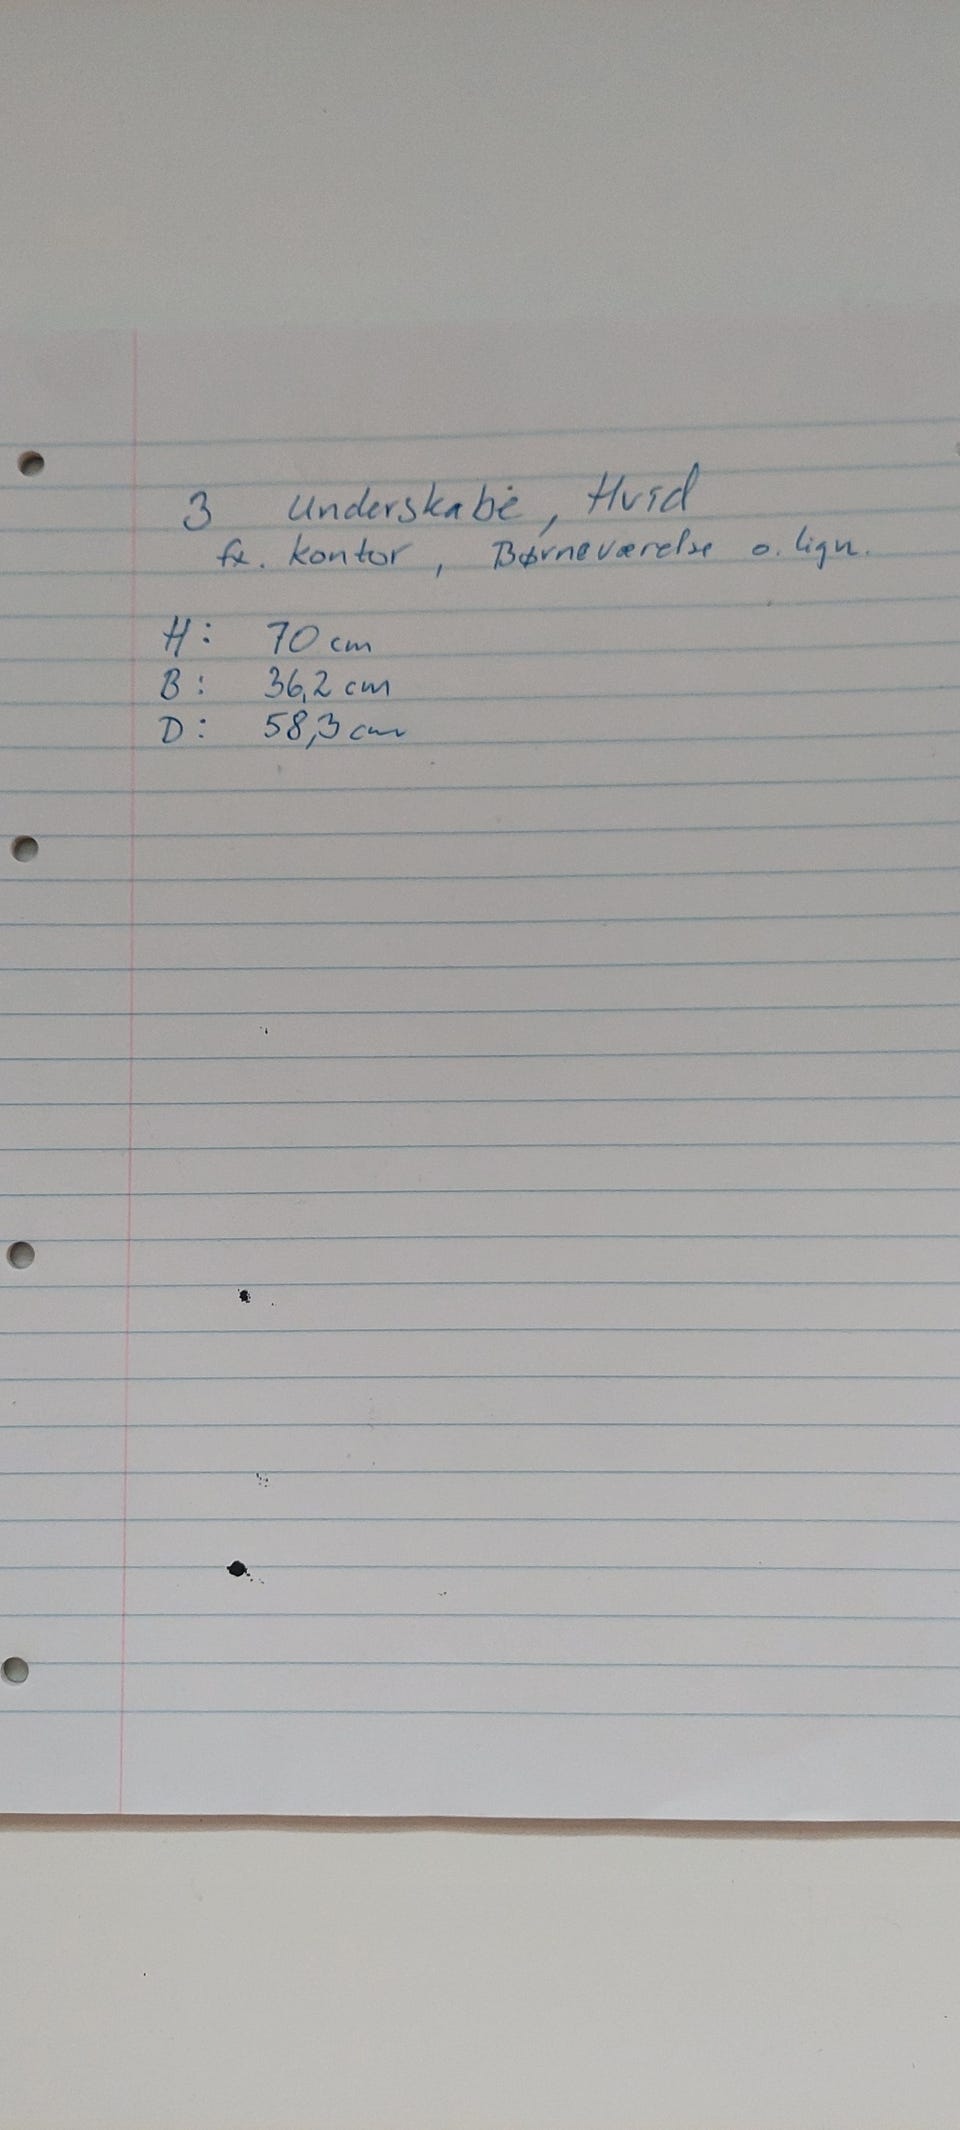 3 Underskabe, Hvid
fx. kontor, Børneværelse o. lign.
H: 70 cm
B: 36,2 cm
D: 58,3 cm